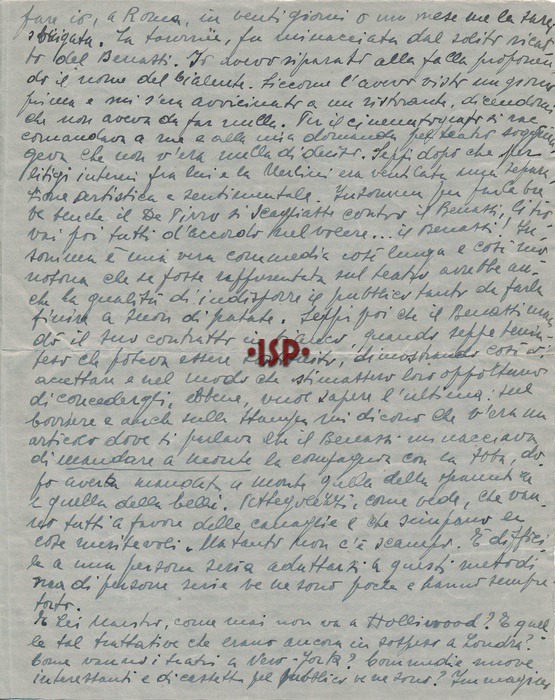 fare io, a Roma, in venti giorni o un mese me la sarei
sbrigata. La tournée, fu minacciata dal solito ricat
to del Benassi. Io dovevo riparare alla falla proponen
do il nome del Cialente. Siccome l'avevo visto un giorno
prima e mi s'era avvicinato a un ristorante, dicendomi
che non aveva da far nulla. Per il cinematografo si rac
comandava a me e alla mia domanda pel teatro soggiun
geva che non v'era nulla di deciso. Seppi dopo che per
litigi interni fra lui e la Merlini era ventilata una separa
zione artistica e sentimentale. Insomma per farla bre
ve benché il De Pirro si scagliasse contro il Benassi, li tro
vai poi tutti d'accordo nel volere... il Benassi! In
somma è una vera commedia così lunga e così mo
notona che se fosse rappresentata sul teatro avrebbe an
che la qualità di indisporre il pubblico tanto da farla
finire a suon di patate. Seppi poi che il Benassi man
dò il suo contratto in bianco, quando seppe
che poteva essere, dimostrando così di
accettare e nel modo che stimassero loro opportuno
di concedergli. Ebbene, vuol sapere l'ultima: sul
corriere e anche sulla Stampa mi dicono che v'era un
articolo dove si parlava che il Benassi minacciava
di mandare a monte la compagnia con la Tota, do
po averla mandata a monte quella della
e quella della bella. Pettegolezzi, come vede, che van
no tutti a favore delle canaglie e che sempre
cose meritevoli. Ma tanto non c'è scampo. È diffici
le a una persona seria adattarsi a questi metodi,
ma di persone serie ve ne sono poche e hanno sempre
torto.
E Lei Maestro, come mai non va a Holliwood? E quel
le tal trattative che erano ancora in sospeso a Londra?
Come vanno i teatri a New-York? Commedie nuove
interessanti e di cassetta pel pubblico ve ne sono? Immagino
ISP